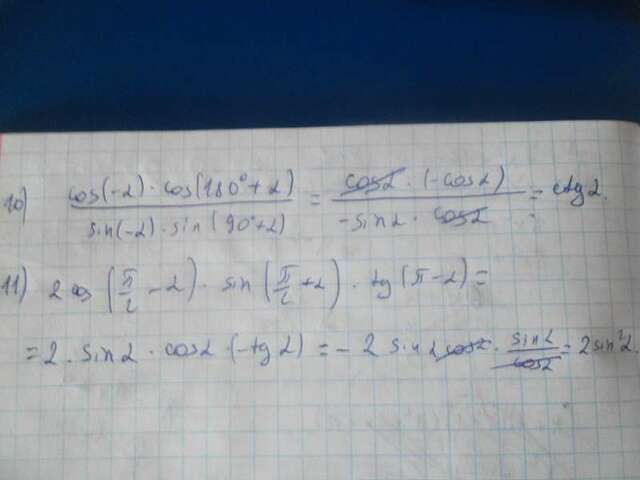 10) cos(-α)·cos(180°+α) / sin(-α)·sin(90°+α) = cosα·(-cosα) / -sinα·cosα = ctgα.
11) 2cos(π/2 - α)·sin(π/2 + α)·tg(π-α) =
= 2·sinα·cosα(-tgα) = -2 sinα cosα · sinα/cosα = 2sin²α.